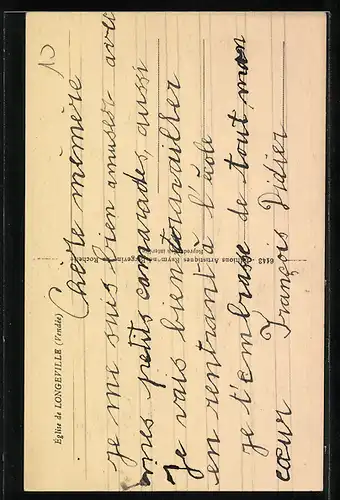 10
Église de LONGEVILLE (Vendée)
Chère mémère
je me suis bien amuser avec
mes petits camarades, aussi
Je vais bien travailler
en rentrant à l'école
je t'embrase de tout mon
cœur François Didier
6143 - Éditions Artistiques